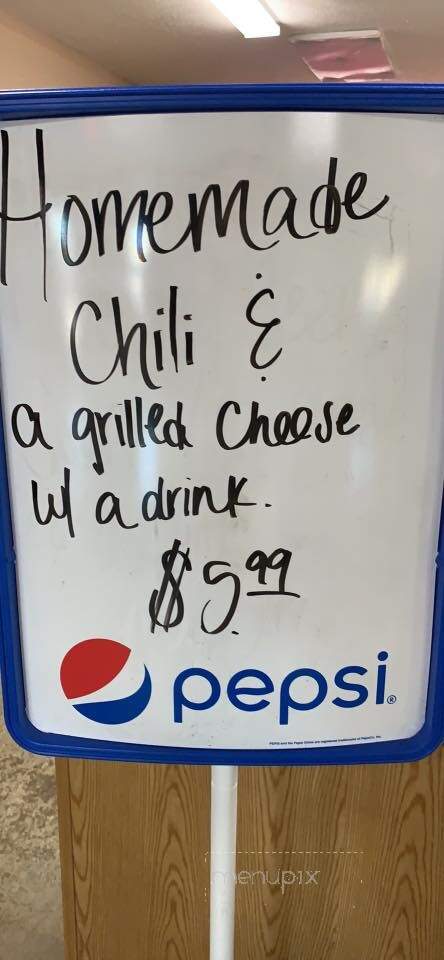 Homemade
Chili &
a grilled cheese
w/ a drink.
$5.99
pepsi
menupix